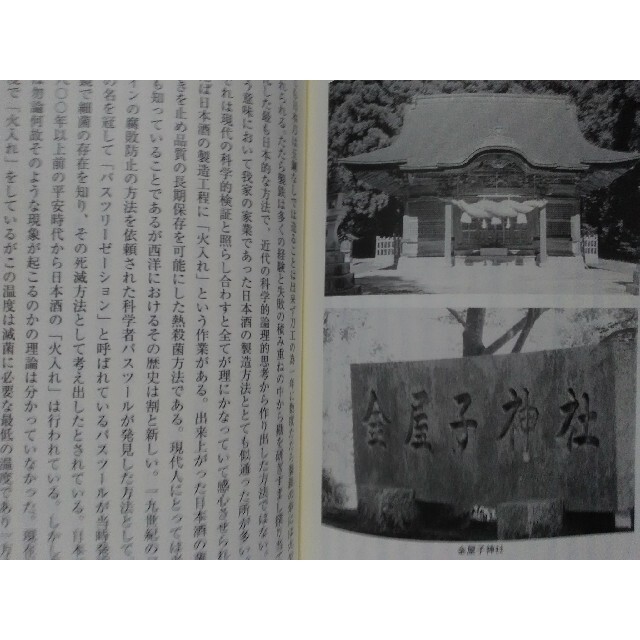 れられる。たたら製鉄は多くの経験と失敗の積み重ねの中から勘を研ぎすまし探り当て
した最も日本的な方法で、近代の科学的論理的思考から作り出した方法ではない。
う意味において我家の家業であった日本酒の製造方法ととても似通った所が多い
それは現代の科学的検証と照らし合わすと全てが理にかなっていて感心させられ
ば日本酒の製造工程に「火入れ」という作業がある。出来上がった日本酒の
きを止め品質の長期保存を可能にした熱殺菌方法である。現代人にとっては
も知っていることであるが西洋におけるその歴史は割と新しい。一九世紀の
インの腐敗防止の方法を依頼された科学者パスツールが発見した方法として
の名を冠して「パスツリーゼーション」と呼ばれているパスツールが当時発
鏡で細菌の存在を知り、その死滅方法として考え出したとされている。日本
〇〇年以上前の平安時代から日本酒の「火入れ」は行われている。しかし
は勿論何故そのような現象が起こるのかの理論は分かっていなかった。現在
で「火入れ」をしているがこの温度は滅菌に必要な最低の温度であり一方
金屋子神社
金屋子神社